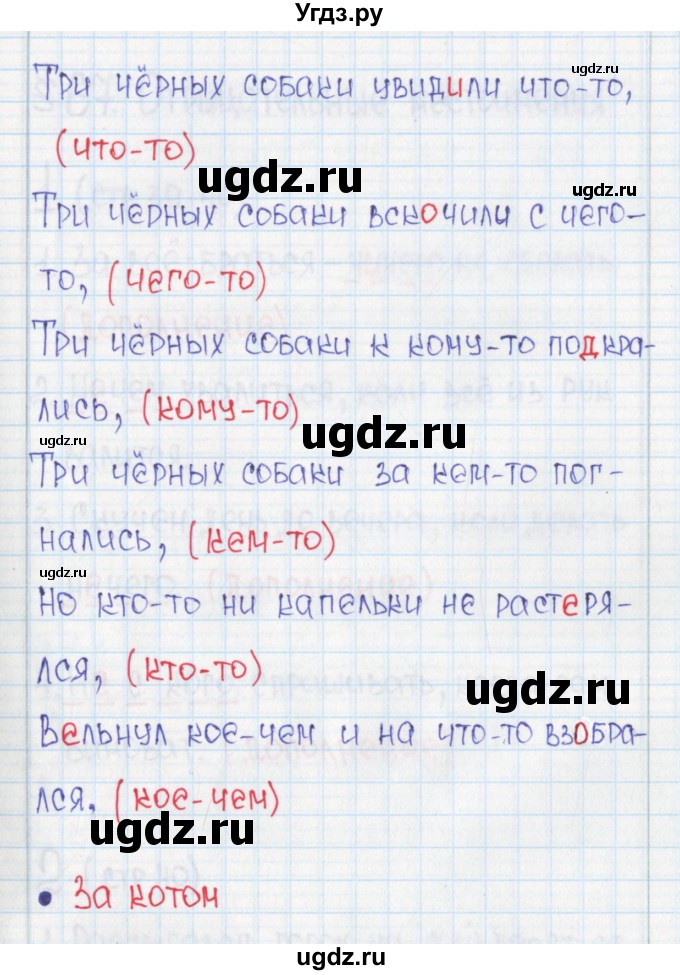 Угдз.ру
Три чёрных собаки увидили что-то,
ugdz.ru
(что-то)
ugdz.ru
ugdz.ru
Три чёрных собаки вскочили с чего-
то, (чего-то)
Три чёрных собаки к кому-то подкра-
лись, (кому-то)
ugdz.ru
ugdz.ru
Три чёрных собаки за кем-то пог-
нались, (кем-то)
ugdz.ru
Но кто-то ни капельки не растеря-
лся, (кто-то)
ugdz.ru
Вельнул кое-чем и на что-то взобра-
ugdz.ru
лся. (кое-чем)
ugdz.ru
• За котом
ugdz.ru